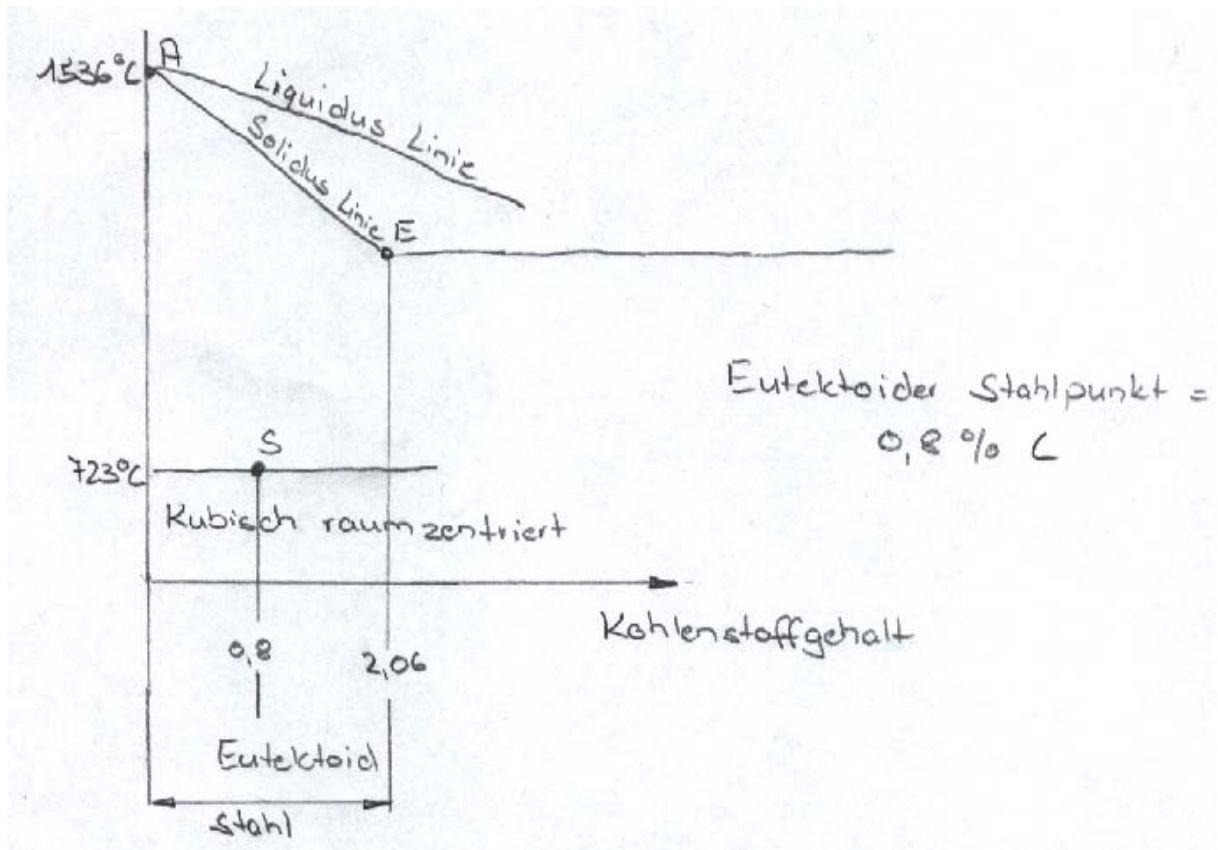 A
1536°C
Liquidus Linie
Solidus Linie
E
Eutektoider Stahlpunkt =
0,8 % C
S
723°C
Kubisch raumzentriert
Kohlenstoffgehalt
0,8
2,06
Eutektoid
Stahl